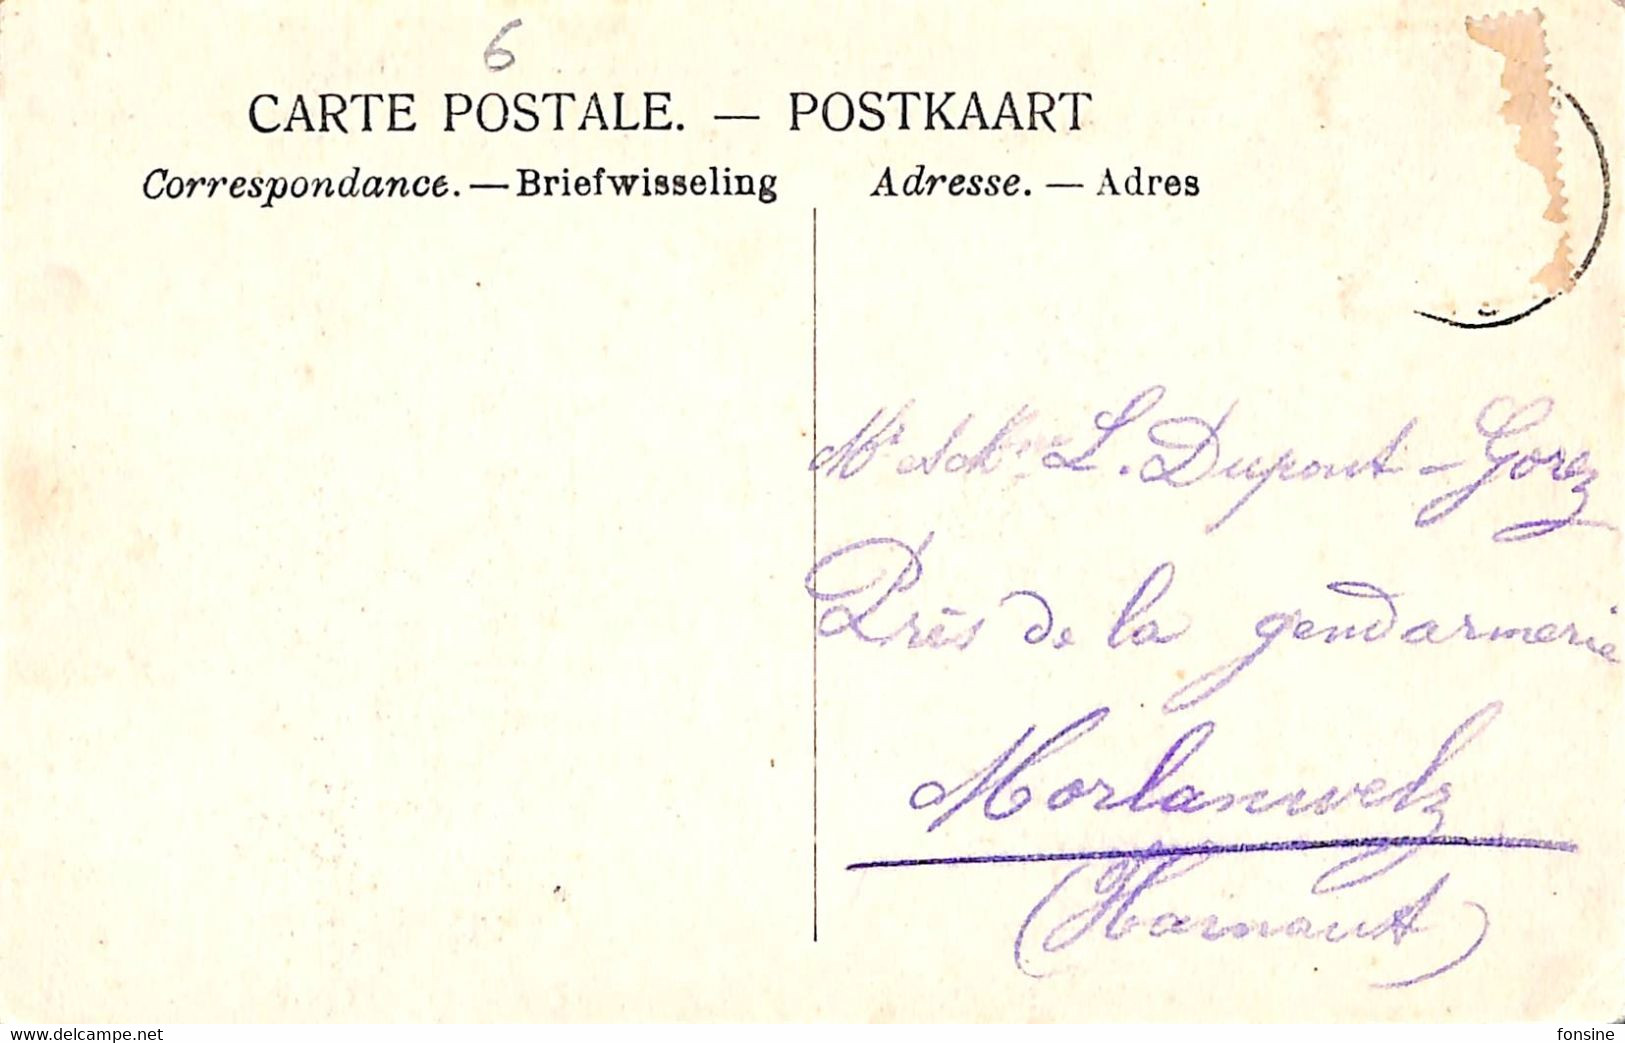 6
CARTE POSTALE. — POSTKAART
Correspondance. — Briefwisseling
Adresse. — Adres
Mr & Mme L. Dupont-Gorez
Près de la gendarmerie
Morlanwelz
(Hainaut)
delcampe.net
fonsine